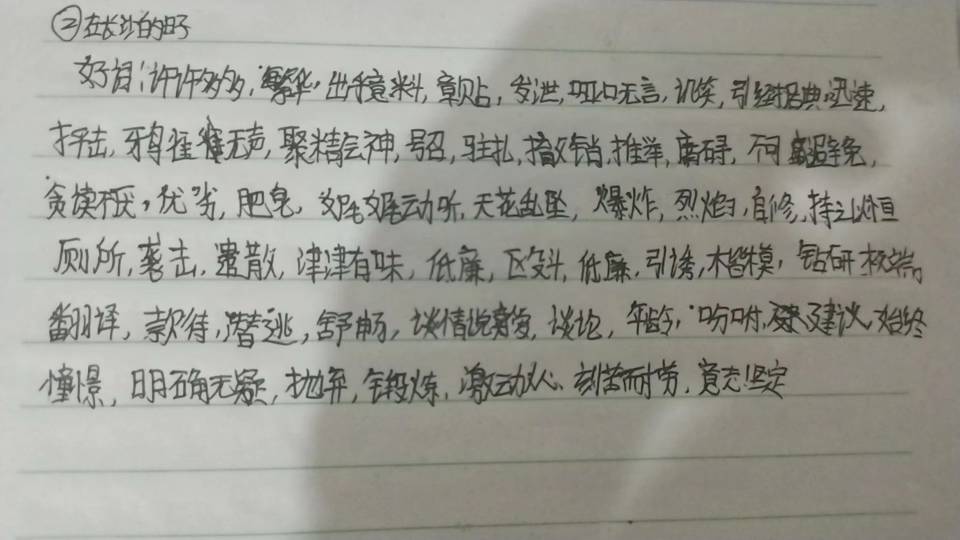 ②在长沙的日子
好词:许许多多,繁华,出乎意料,章贴,发泄,哑口无言,讥笑,引经据典,迅速,
抨击,鸦雀无声,聚精会神,号召,驻扎,撤销,推举,磨碍,不可避免,
贪读不厌,优劣,肥皂,娓娓动听,天花乱坠,爆炸,烈焰,自修,持之以恒
厕所,袭击,遣散,津津有味,低廉,区别,低廉,引诱,楷模,钻研,极端,
翻译,款待,潜逃,舒畅,谈情说爱,谈论,年龄,吩咐,建议,始终
憧憬,明确无疑,抛弃,锻炼,激动人心,刻苦耐劳,意志坚定